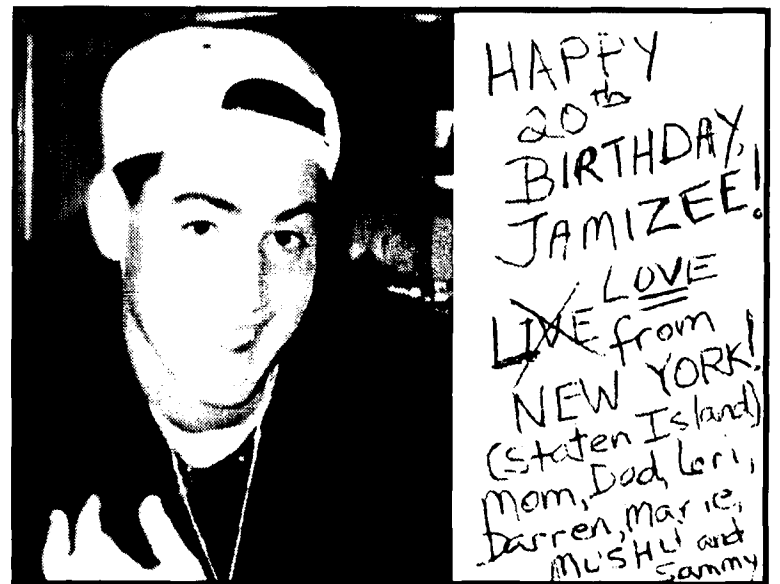 HAPPY
20th
BIRTHDAY,
JAMIZEE!
LOVE
LIVE from
NEW YORK!
(Staten Island)
Mom, Dad, Lori,
Darren, Marie,
MUSHU and
Sammy